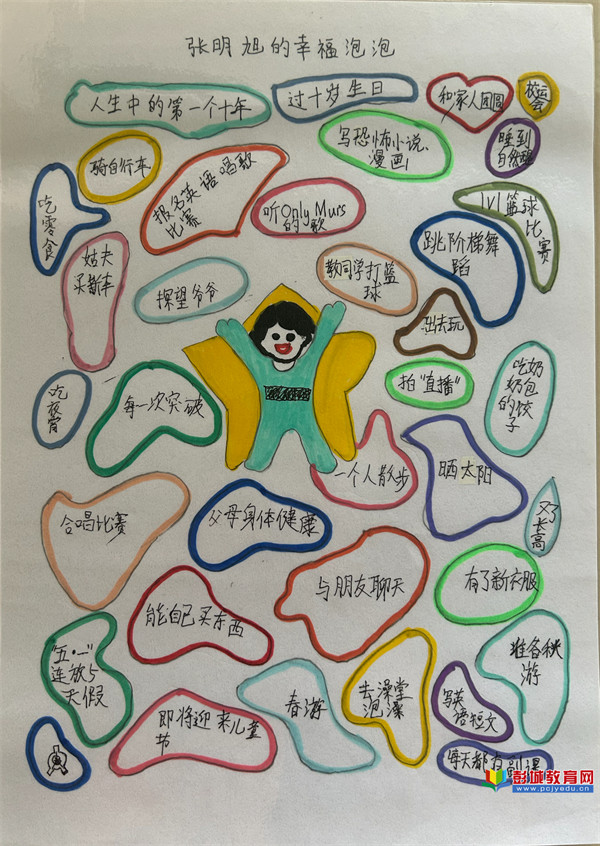 张明旭的幸福泡泡
人生中的第一个十年
过十岁生日
和家人团圆
校运
会
骑自行车
写恐怖小说、
漫画
睡到
自然醒
吃
零
食
报名英语唱歌
比赛
听Only Murs
的歌
跳阶梯舞
蹈
1V1篮球
比
赛
姑夫
买新车
探望爷爷
教同学打篮
球
出去玩
吃夜宵
每一次突破
拍“直播”
吃奶
奶包
的饺
子
一个人散步
晒太阳
合唱比赛
父母身体健康
又
长
高
能自己买东西
与朋友聊天
有了新衣服
“五·一”
连放5
天假
即将迎来儿童
节
春游
去澡堂
泡澡
写英
语短文
准备秋
游
每天都有副课
彭城教育网
www.pcjyedu.cn